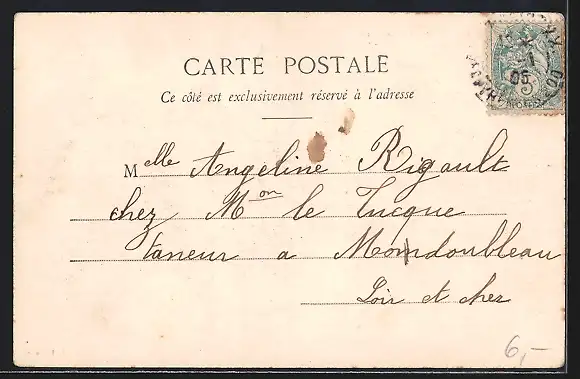 CARTE POSTALE
Ce côté est exclusivement réservé à l'adresse
Melle Angeline Rigault
chez Mon le Tucque
taneur a Mondoubleau
Loir et cher
05
5
6,-